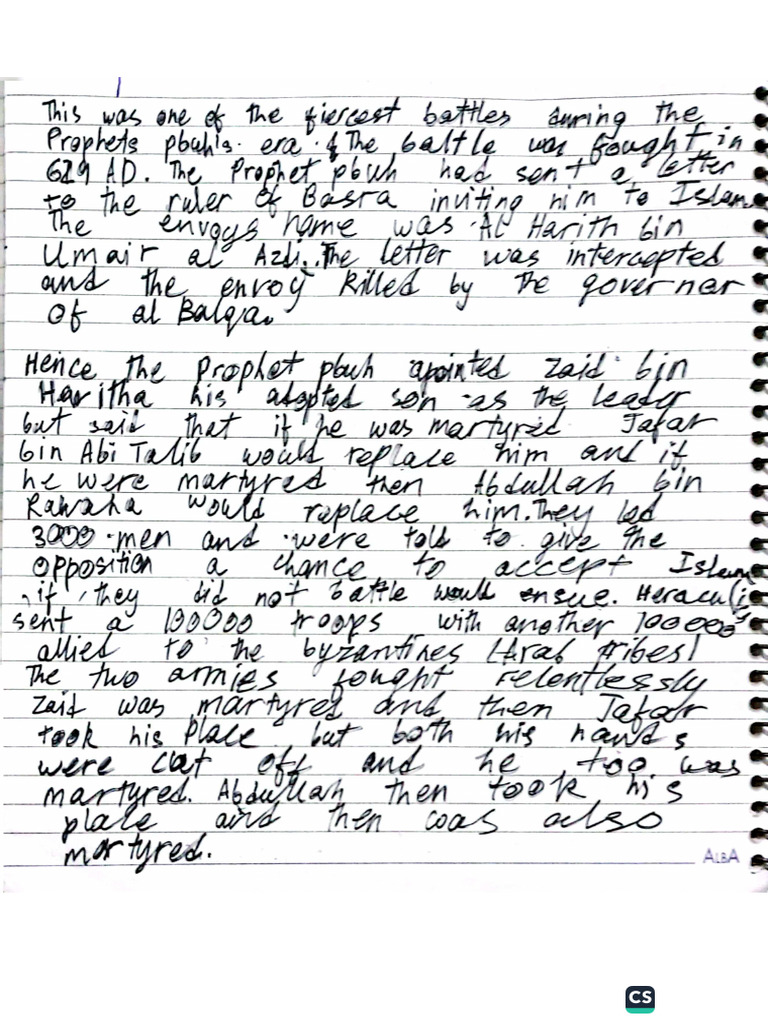 This was one of the fiercest battles during the
Prophets pbuh's era. The battle was fought in
629 AD. The Prophet pbuh had sent a letter
to the ruler of Basra inviting him to Islam
The envoys name was Al Harith bin
Umair al Azdi. The letter was intercepted
and the envoy killed by the governer
of al Balqa.
Hence the prophet pbuh apointed Zaid bin
Haritha his adopted son as the leader
but said that if he was martyred Jafar
bin Abi Talib would replace him and if
he were martyred then Abdullah bin
Rawaha would replace him. They led
3000 men and were told to give the
opposition a chance to accept Islam
if they did not battle would ensue.
sent a 100000 troops with another 100000
allied to the byzantines (Arab tribes)
The two armies fought relentlessly
Zaid was martyred and then Jafar
took his place but both his hands
were cut off and he too was
martyred. Abdullah then took his
place and then was also
martyred.
ALBA
CS